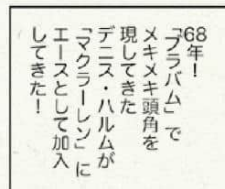 68年!
「ブラバム」で
メキメキ頭角を
現してきた
デニス・ハルムが
「マクラーレン」に
エースとして加入
してきた!